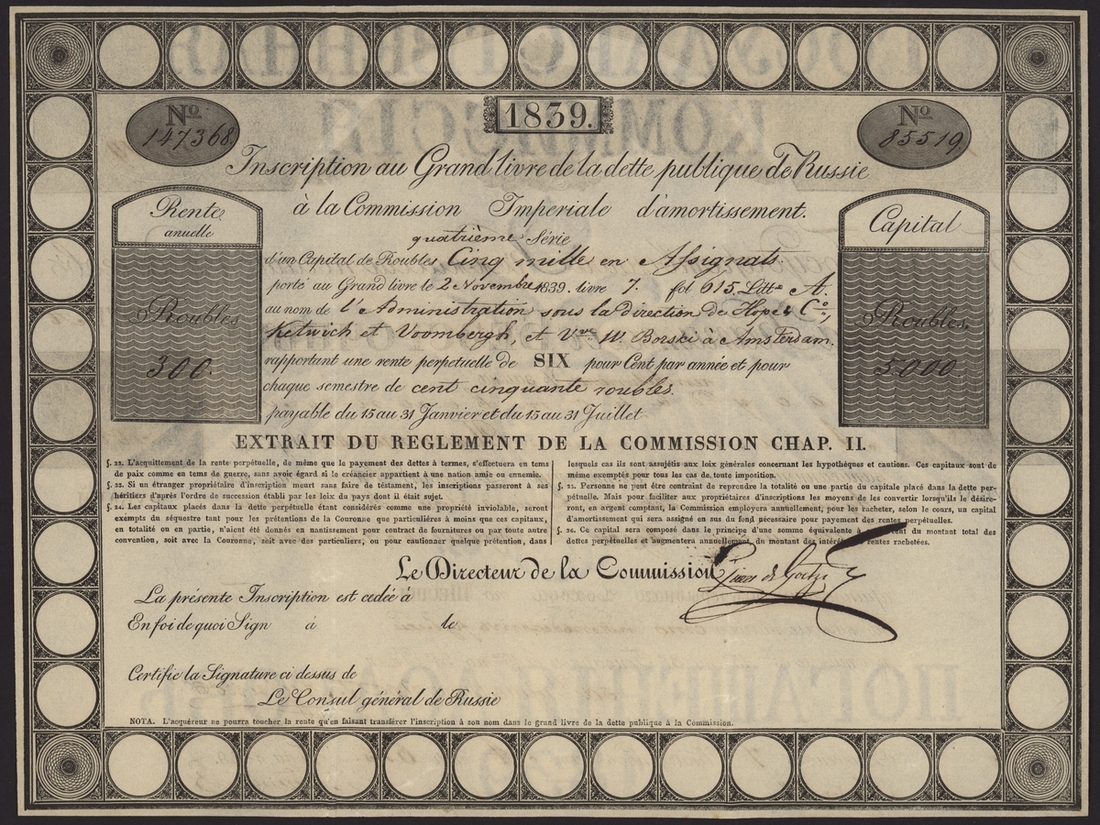 No 147368.
1839.
No 85519.
Inscription au Grand livre de la dette publique de Russie
à la Commission Imperiale d'amortissement.
Rente
anuelle
Roubles
300.
Capital
Roubles.
5000
quatrième Série
d'un Capital de Roubles Cinq mille en Assignats.
porté au Grand livre le 2 Novembre 1839. livre 7. fol 615. Littª A.
au nom de l'Administration sous la direction de Hope & Cº,
Ketwich et Voombergh, et Vve W. Borski à Amsterdam.
rapportant une rente perpetuelle de SIX pour Cent par année et pour
chaque semestre de cent cinquante roubles.
payable du 15 au 31 Janvier et du 15 au 31 Juillet
EXTRAIT DU REGLEMENT DE LA COMMISSION CHAP. II.
§. 22. L'acquittement de la rente perpétuelle, de même que le payement des dettes à termes, s'effectuera en tems
de paix comme en tems de guerre, sans avoir égard si le créancier appartient à une nation amie ou ennemie.
§. 23. Si un étranger propriétaire d'inscription meurt sans faire de téstament, les inscriptions passeront à ses
héritiers d'après l'ordre de succession établi par les loix du pays dont il était sujet.
§. 24. Les capitaux placés dans la dette perpétuelle étant considérés comme une propriété inviolable, seront
exempts du séquestre tant pour les prétentions de la Couronne que particulières à moins que ces capitaux,
en totalité ou en partie, n'aient été donnés en nantissement pour contract de fournitures ou par toute autre
convention, soit avec la Couronne, soit avec des particuliers, ou pour cautionner quelque prétention, dans
lesquels cas ils sont assujétis aux loix générales concernant les hypothèques et cautions. Ces capitaux sont de
même exemptés pour tous les cas de toute imposition.
§. 25. Personne ne peut être contraint de reprendre la totalité ou une partie du capital placé dans la dette per-
pétuelle. Mais pour faciliter aux propriétaires d'inscriptions les moyens de les convertir lorsqu'ils le désire-
ront, en argent comptant, la Commission employera annuellement, pour les racheter, selon le cours, un capital
d'amortissement qui sera assigné en sus du fond nécessaire pour payement des rentes perpétuelles.
§. 26. Ce capital sera composé dans le principe d'une somme équivalente à du montant total des
dettes perpétuelles et augmentera annuellement, du montant des intérêts rentes rachetées.
Le Directeur de la Commission
La présente Inscription est cedée à
En foi de quoi Sign à le
Certifie la Signature ci dessus de
Le Consul général de Russie
NOTA. L'acquéreur ne pourra toucher la rente qu'en faisant transférer l'inscription à son nom dans le grand livre de la dette publique à la Commission.